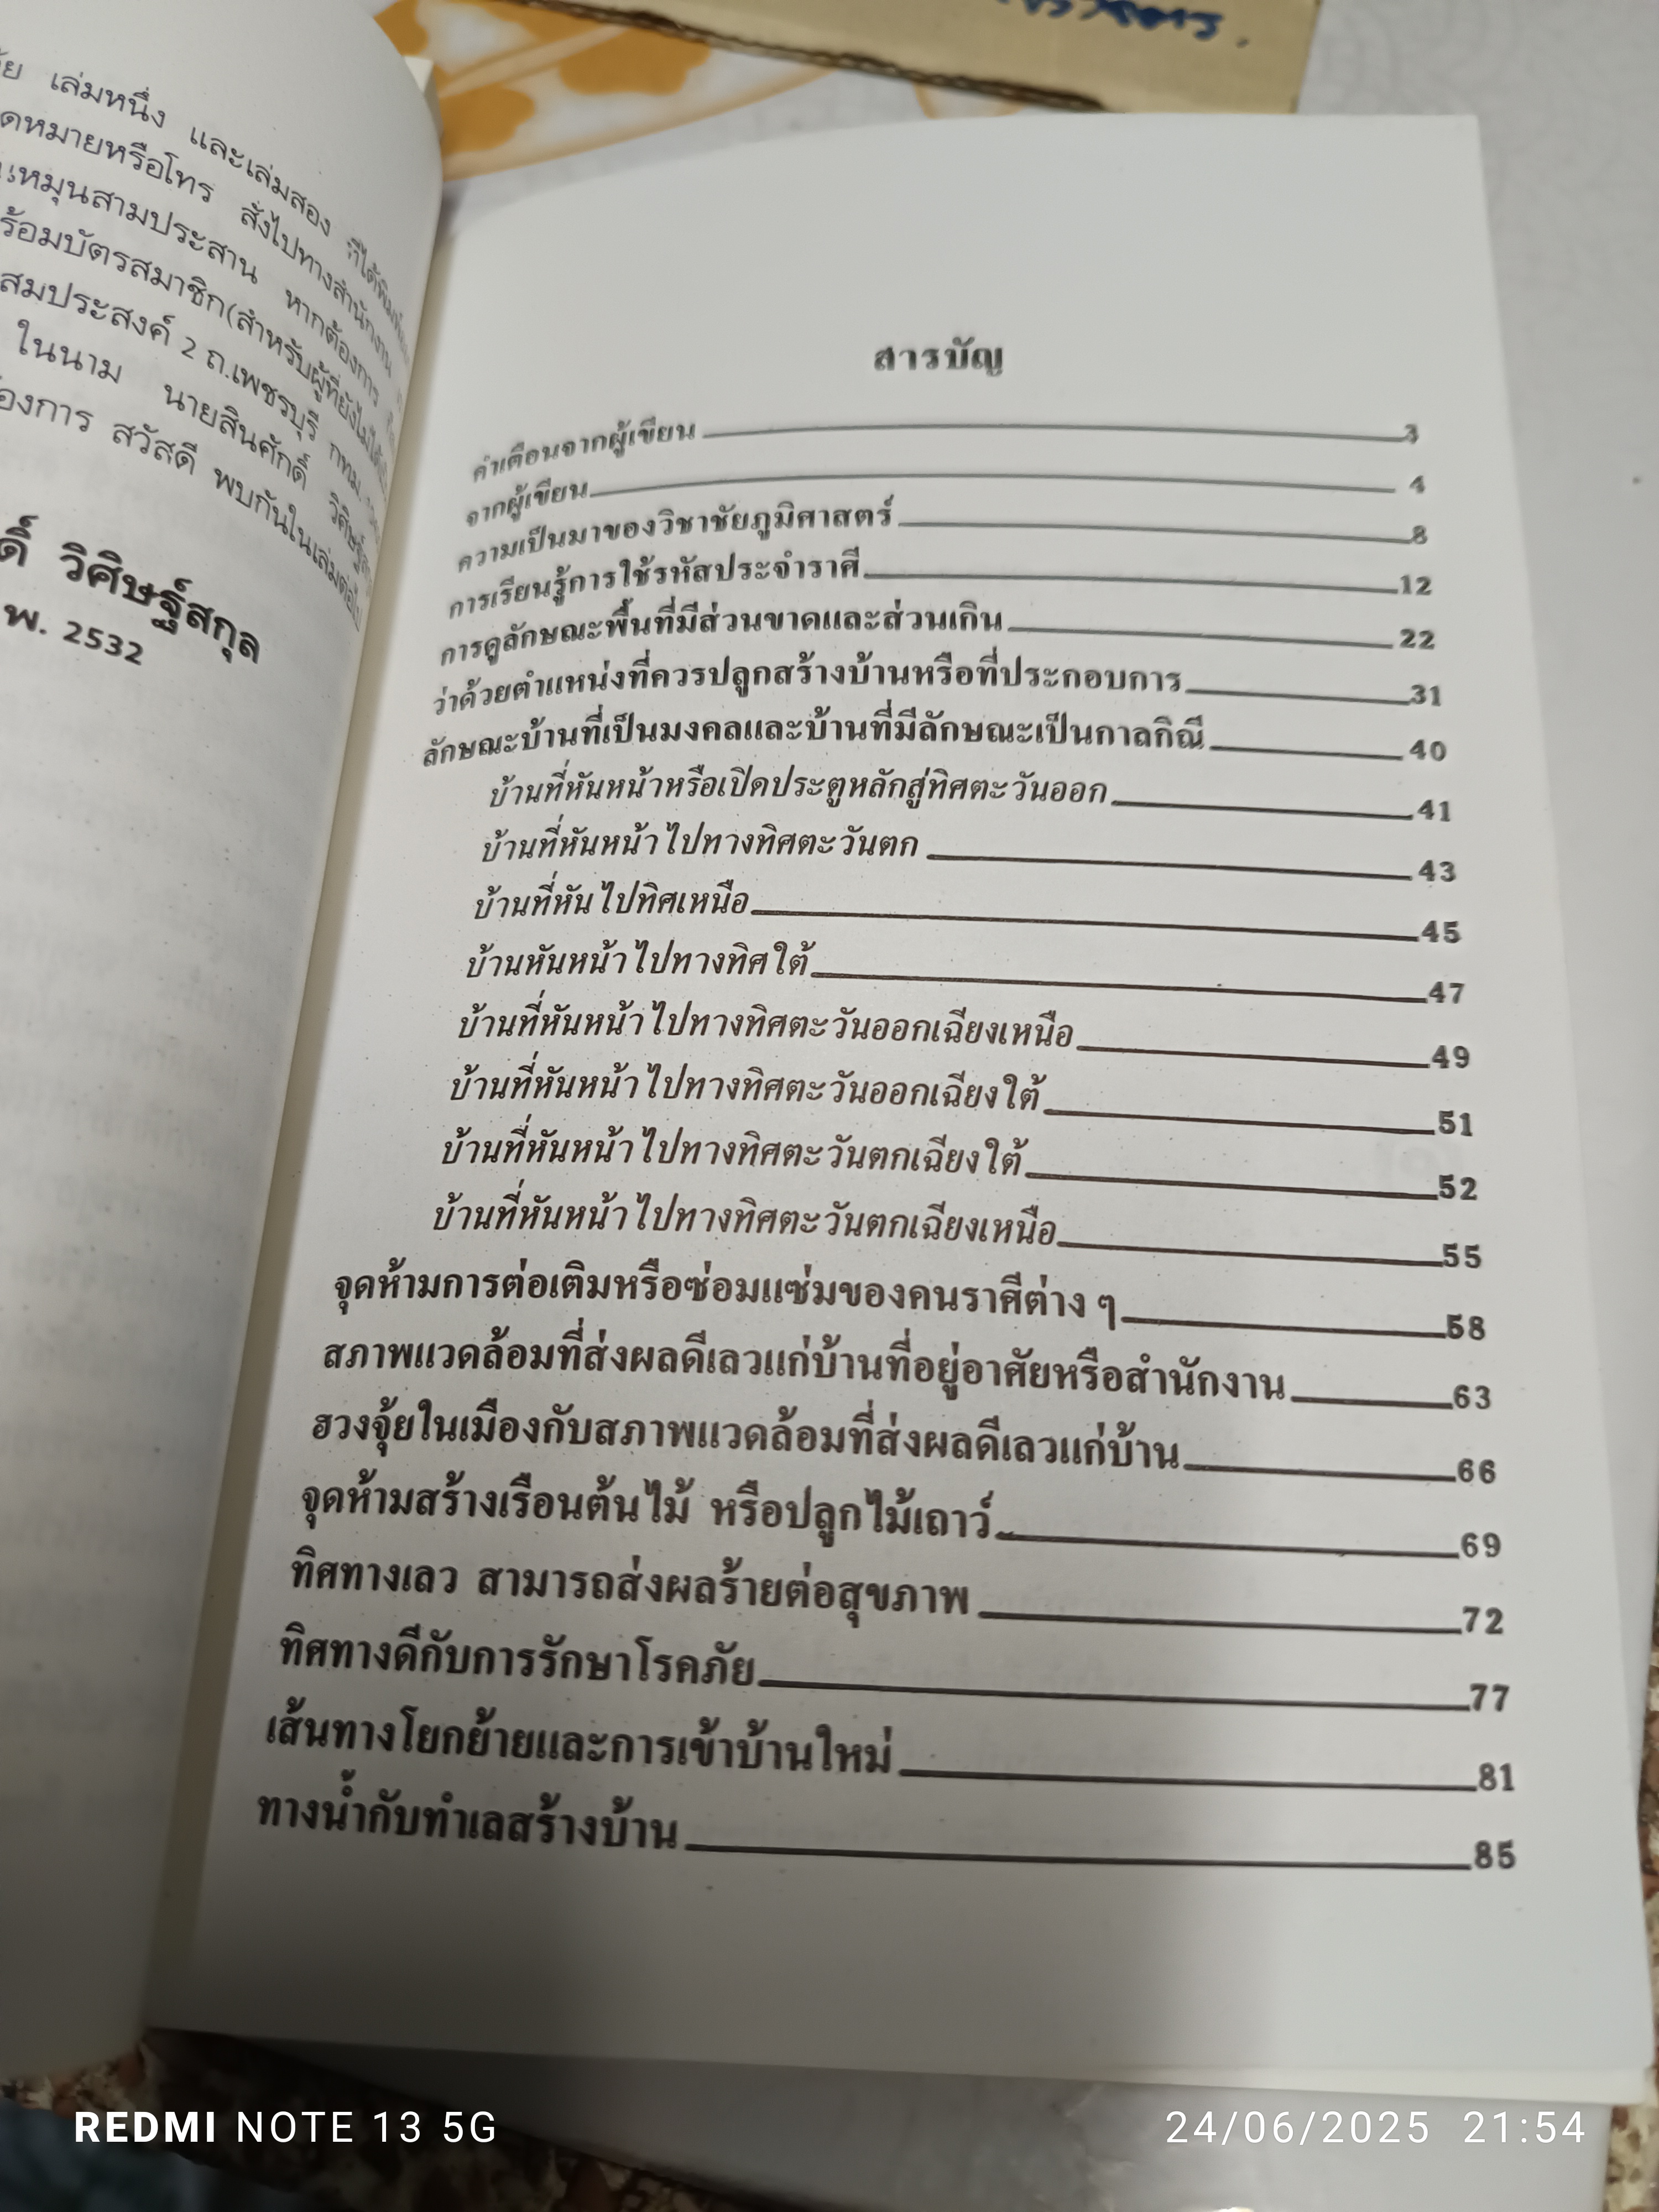 เล่มหนึ่ง และเล่มสอง
หมายหรือโทร สั่งไปทางสำนักงาน
หมุนสามประสาน หากต้องการ
ร้อมบัตรสมาชิก(สำหรับผู้ที่ยังไม่ได้
สมประสงค์ 2 ถ.เพชรบุรี กทม.
ในนาม นายสินศักดิ์
องการ สวัสดี พบกันในเล่มต่อไป
ดิ์ วิศิษฐ์สกุล
พ. 2532
สารบัญ
คำเตือนจากผู้เขียน 3
จากผู้เขียน 4
ความเป็นมาของวิชาชัยภูมิศาสตร์ 8
การเรียนรู้การใช้รหัสประจำราศี 12
การดูลักษณะพื้นที่มีส่วนขาดและส่วนเกิน 22
ว่าด้วยตำแหน่งที่ควรปลูกสร้างบ้านหรือที่ประกอบการ 31
ลักษณะบ้านที่เป็นมงคลและบ้านที่มีลักษณะเป็นกาลกิณี 40
บ้านที่หันหน้าหรือเปิดประตูหลักสู่ทิศตะวันออก 41
บ้านที่หันหน้าไปทางทิศตะวันตก 43
บ้านที่หันไปทิศเหนือ 45
บ้านหันหน้าไปทางทิศใต้ 47
บ้านที่หันหน้าไปทางทิศตะวันออกเฉียงเหนือ 49
บ้านที่หันหน้าไปทางทิศตะวันออกเฉียงใต้ 51
บ้านที่หันหน้าไปทางทิศตะวันตกเฉียงใต้ 52
บ้านที่หันหน้าไปทางทิศตะวันตกเฉียงเหนือ 55
จุดห้ามการต่อเติมหรือซ่อมแซ่มของคนราศีต่าง ๆ 58
สภาพแวดล้อมที่ส่งผลดีเลวแก่บ้านที่อยู่อาศัยหรือสำนักงาน 63
ฮวงจุ้ยในเมืองกับสภาพแวดล้อมที่ส่งผลดีเลวแก่บ้าน 66
จุดห้ามสร้างเรือนต้นไม้ หรือปลูกไม้เถาว์ 69
ทิศทางเลว สามารถส่งผลร้ายต่อสุขภาพ 72
ทิศทางดีกับการรักษาโรคภัย 77
เส้นทางโยกย้ายและการเข้าบ้านใหม่ 81
ทางน้ำกับทำเลสร้างบ้าน 85
REDMI NOTE 13 5G
24/06/2025 21:54